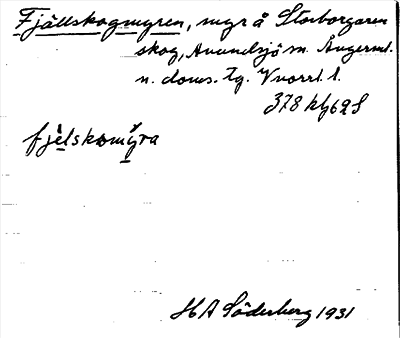 Fjällskogmyren, myr å Storborgaren
skog, Anundsjö sn. Ångerml.
n. doms. tg. Vvorrl. l.
378 kh 62 S
fjelskomyra
HA Söderberg 1931